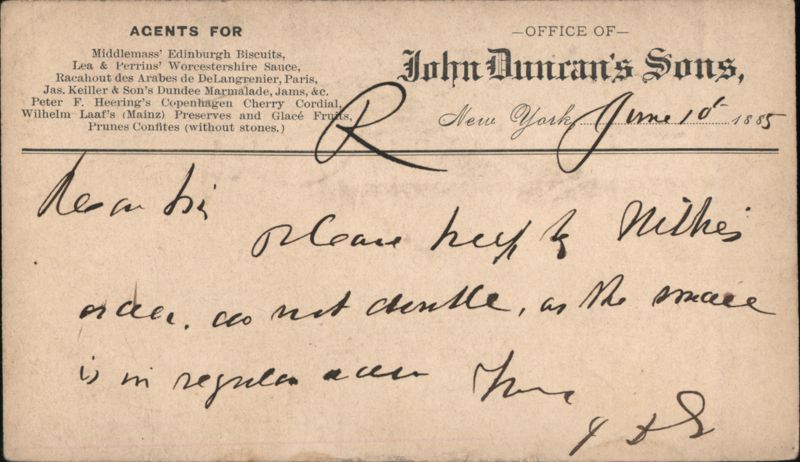 AGENTS FOR
Middlemass' Edinburgh Biscuits,
Lea & Perrins' Worcestershire Sauce,
Racahout des Arabes de DeLangrenier, Paris,
Jas. Keiller & Son's Dundee Marmalade, Jams, &c.
Peter F. Heering's Copenhagen Cherry Cordial,
Wilhelm Laaf's (Mainz) Preserves and Glacé Fruits,
Prunes Confites (without stones.)
—OFFICE OF—
John Duncan's Sons,
New York, June 10 1885
R
Dear Sir
please keep to
order, do not double, as the
is in regular order Yours
J D S